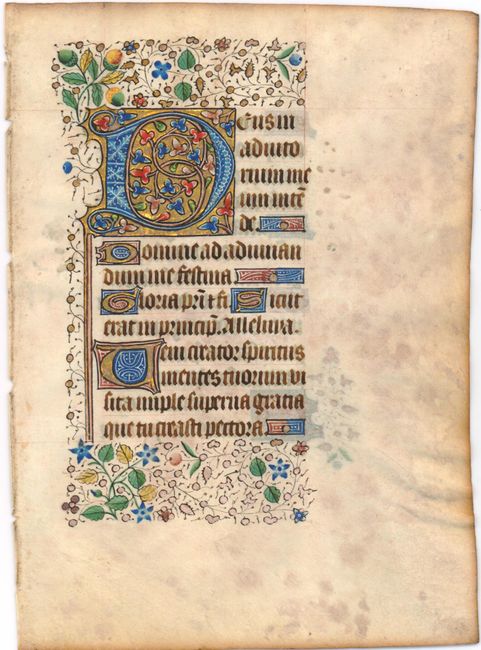 Deus in
adiuto
rium me
um intē
de.
Domine ad adiuuan
dum me festina
Gloria pr̄i & fi. Sicut
erat in principº. Alleluya.
Veni creator spiritus
mentes tuorum vi
sita imple superna gratia
que tu creasti pectora